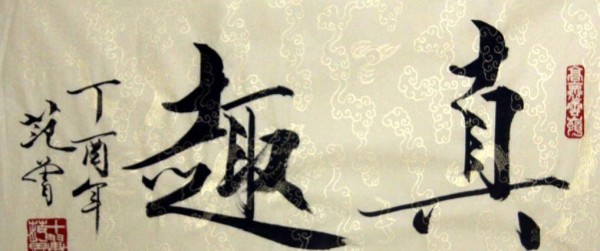 真趣
丁酉年
范曾